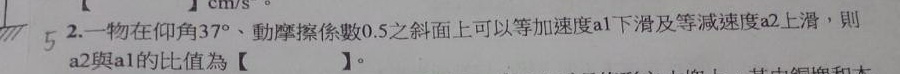 【 】cm/s。
5 2.一物在仰角37°、動摩擦係數0.5之斜面上可以等加速度a1下滑及等減速度a2上滑，則
a2與a1的比值為【 】。